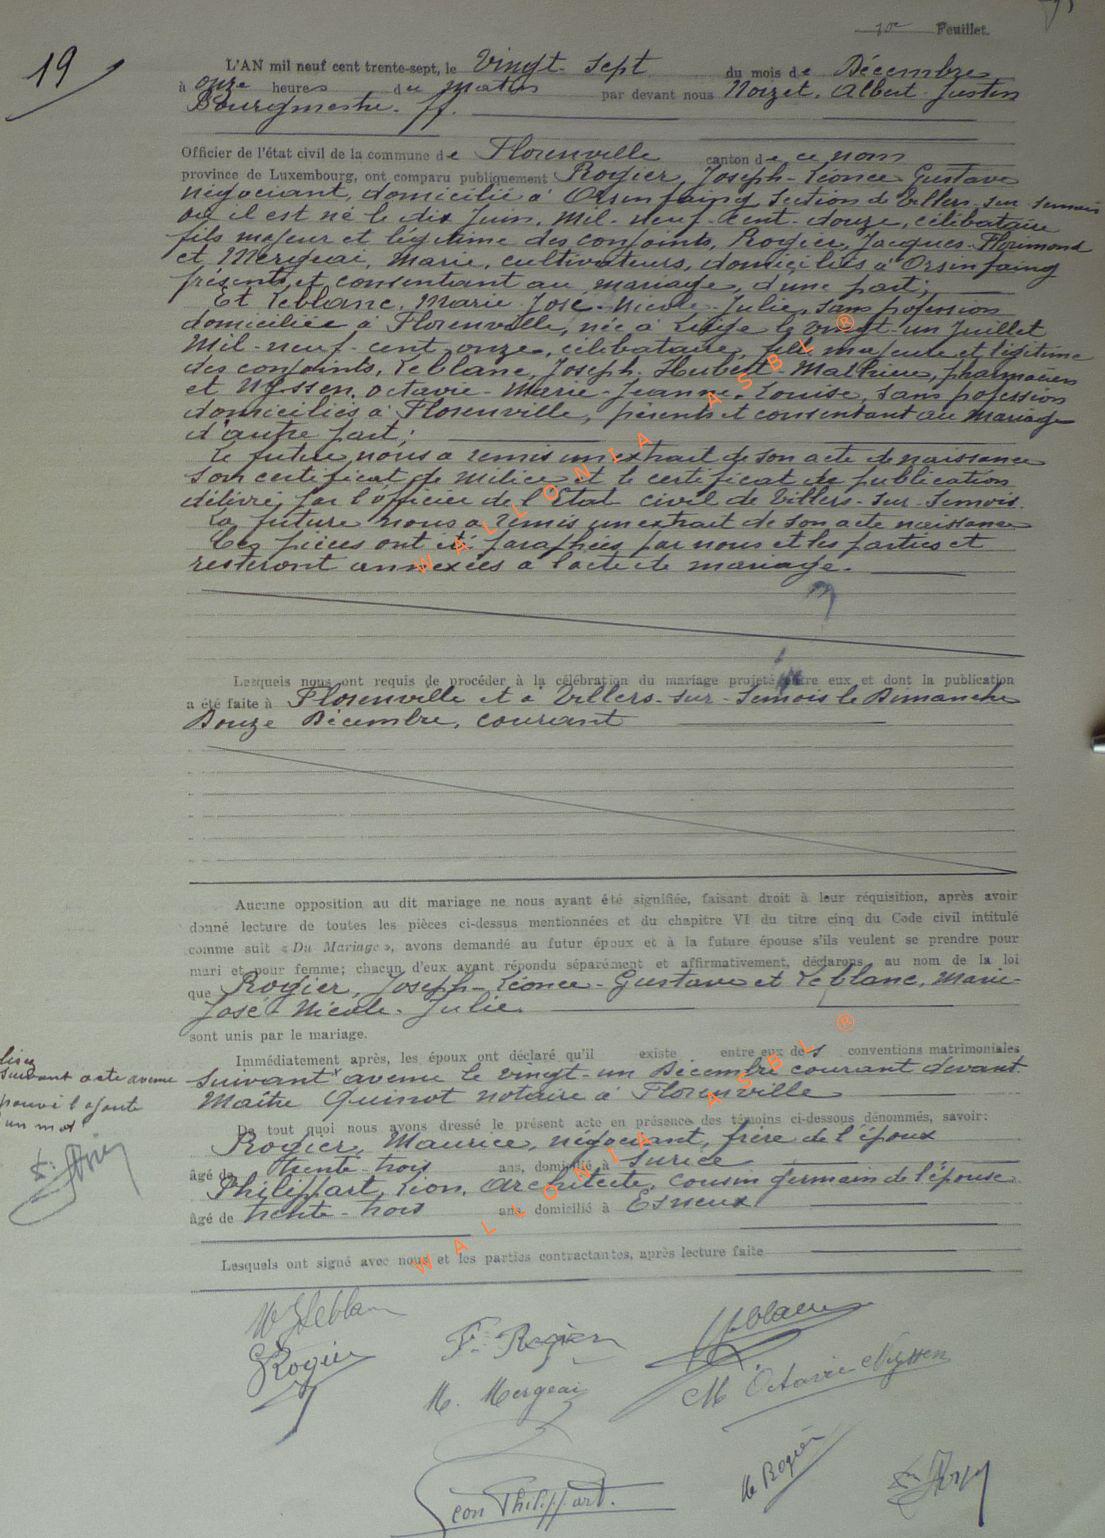 19
Feuillet.
L'AN mil neuf cent trente-sept, le Vingt-sept du mois de Décembre
à onze heures du matin par devant nous Nozet, Albert-Justin
Bourgmestre. ff.
Officier de l'état civil de la commune de Florenville canton de ce nom
province de Luxembourg, ont comparu publiquement Rogier, Joseph-Léonce-Gustave
négociant, domicilié à Orsinfaing Section de Villers-sur-Semois
où il est né le dix Juin, Mil-neuf-cent-douze, célibataire
fils majeur et légitime des conjoints, Rogier, Jacques-Florimond
et Mergeai, Marie, cultivateurs, domiciliés à Orsinfaing
présents et consentant au mariage, d'une part;
Et Leblanc, Marie-José-Nicole-Julie, sans profession
domiciliée à Florenville, née à Liège le vingt-un Juillet
Mil-neuf-cent onze, célibataire, fille majeure et légitime
des conjoints, Leblanc, Joseph-Hubert-Mathieu, pharmacien
et Nyssen, Octavie-Marie-Jeanne-Louise, sans profession
domiciliés à Florenville, présents et consentant au mariage
d'autre part;
Le futur nous a remis un extrait de son acte de naissance
son certificat de milice et le certificat de publication
délivré par l'officier de l'Etat civil de Villers-sur-Semois.
La future nous a remis un extrait de son acte naissance
Ces pièces ont été paraphées par nous et les parties et
resteront annexées à l'acte de mariage.
Lesquels nous ont requis de procéder à la célébration du mariage projeté entre eux et dont la publication
a été faite à Florenville et à Villers-sur-Semois le Dimanche
Douze Décembre, courant
Aucune opposition au dit mariage ne nous ayant été signifiée, faisant droit à leur réquisition, après avoir
donné lecture de toutes les pièces ci-dessus mentionnées et du chapitre VI du titre cinq du Code civil intitulé
comme suit « Du Mariage », avons demandé au futur époux et à la future épouse s'ils veulent se prendre pour
mari et pour femme; chacun d'eux ayant répondu séparément et affirmativement, déclarons au nom de la loi
que Rogier, Joseph-Léonce-Gustave et Leblanc, Marie-
José-Nicole-Julie.
sont unis par le mariage.
Immédiatement après, les époux ont déclaré qu'il existe entre eux des conventions matrimoniales
suivant x avenu le vingt-un Décembre courant devant
Maître Quinot notaire à Florenville
suivant acte avenu
un mot
De tout quoi nous avons dressé le présent acte en présence des témoins ci-dessous dénommés, savoir:
Rogier, Maurice, négociant, frère de l'époux
âgé de trente-trois ans, domicilié à Surice
Philippart, Léon, Architecte, cousin germain de l'épouse
âgé de trente-trois ans, domicilié à Esneux
Lesquels ont signé avec nous et les parties contractantes, après lecture faite
MJ Leblanc
F. Rogier
Leblanc
GRogier
M. Mergeai
M Octavie Nyssen
Léon Philippart.
M Rogier
WALLONIA ASBL ®
WALLONIA ASBL ®